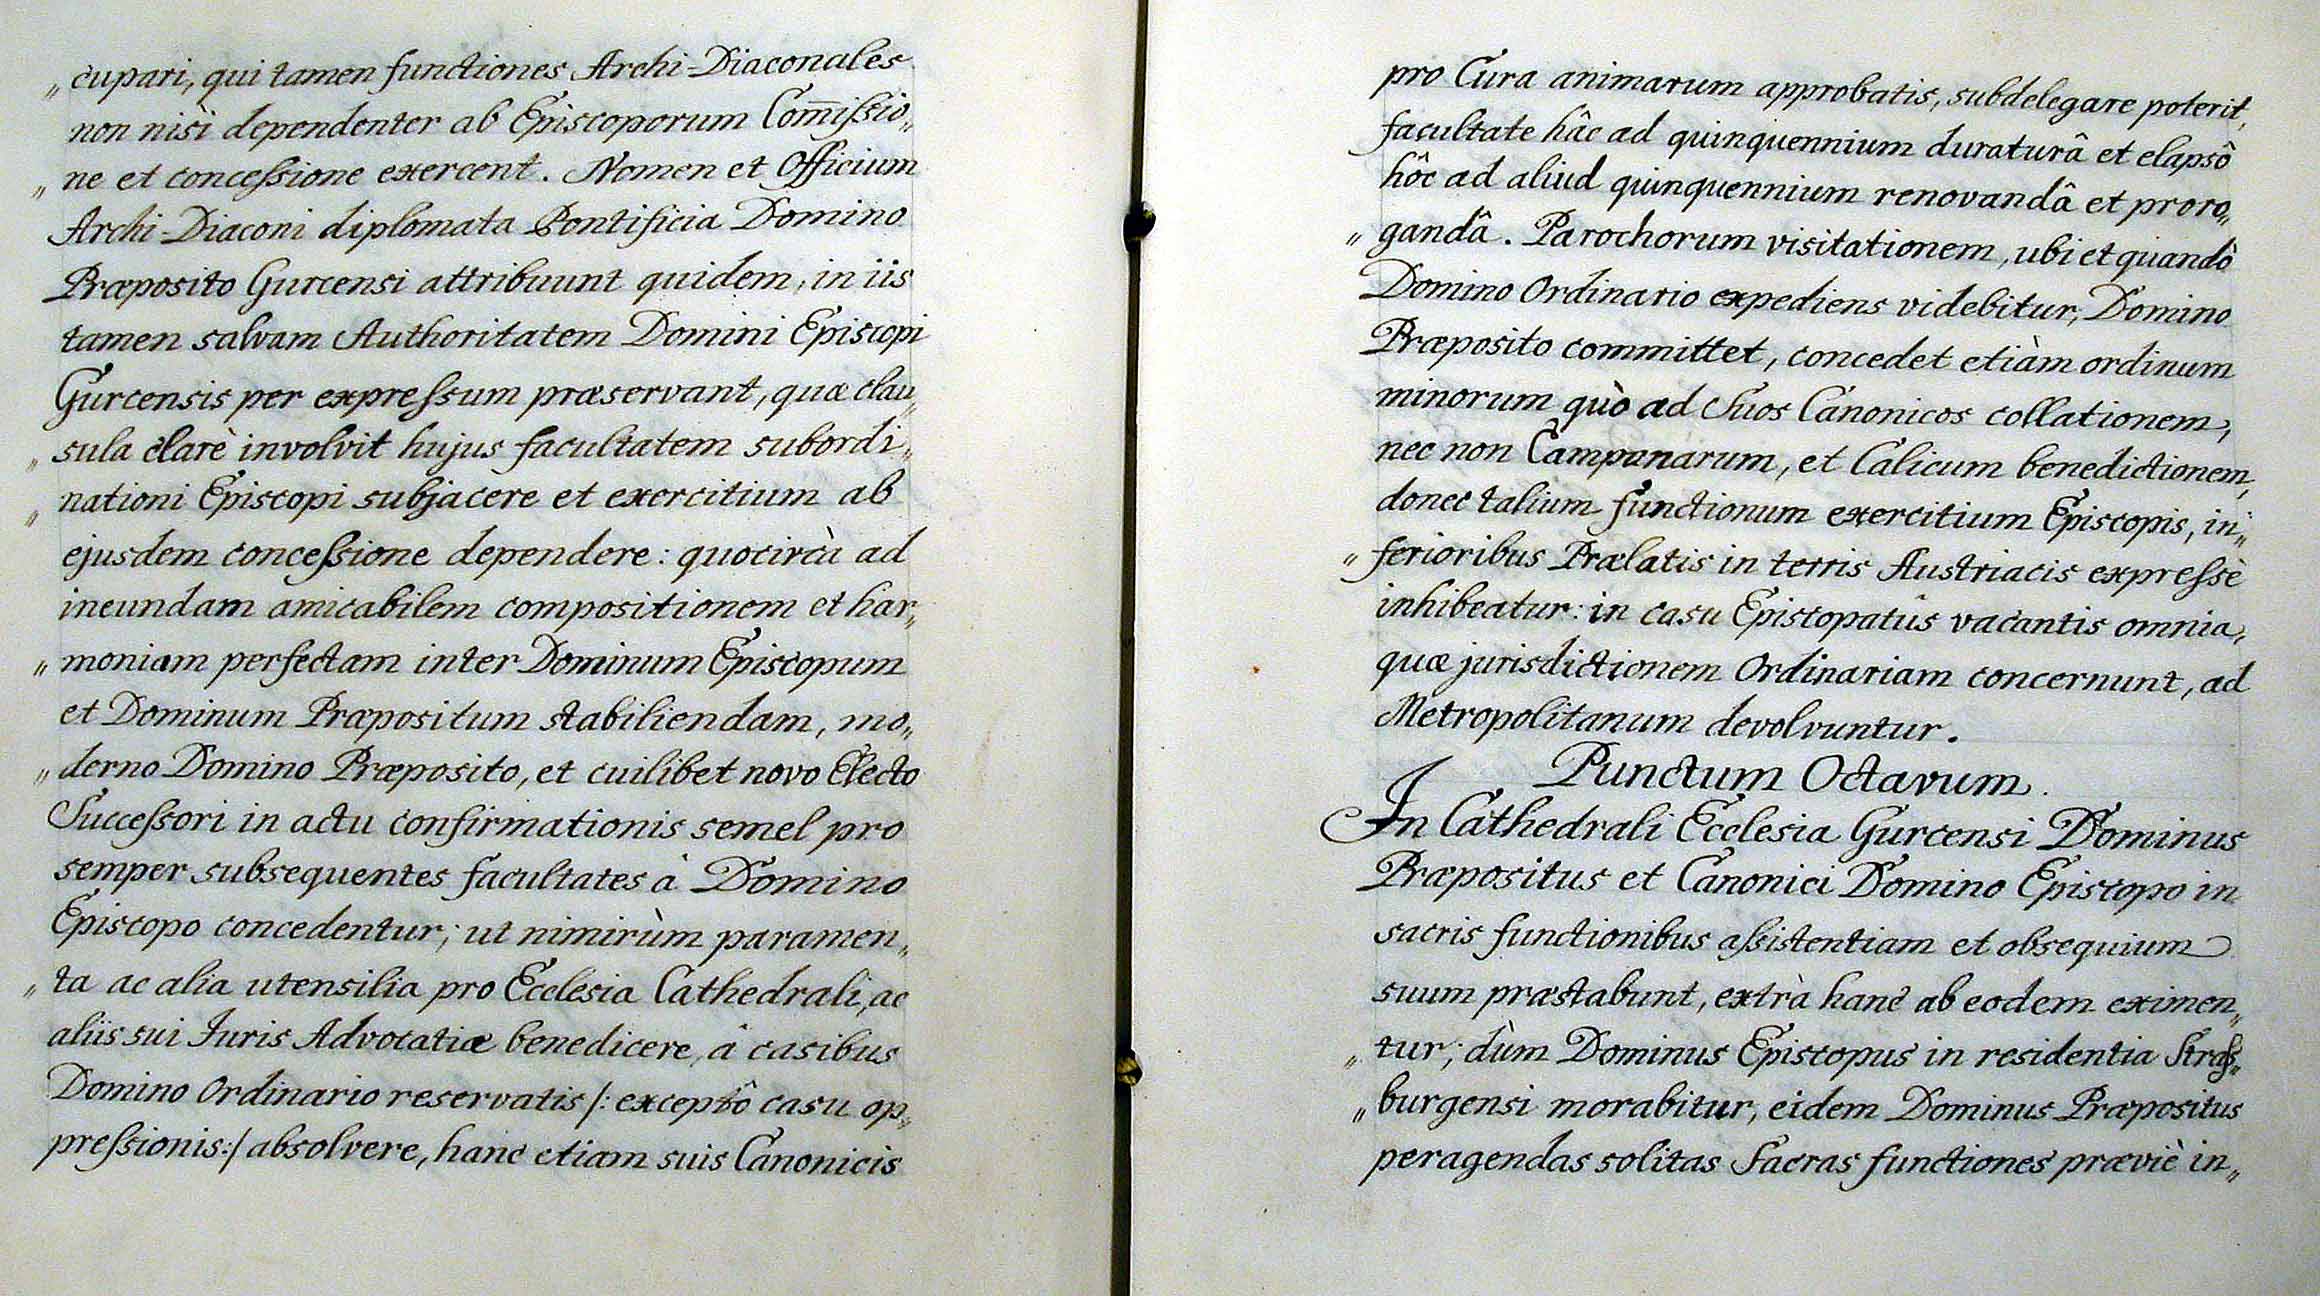 „ cupari, qui tamen functiones Archi-Diaconales
non nisi dependenter ab Episcoporum Com̄ißio„
„ ne et conceßione exercent. Nomen et Officium
Archi-Diaconi diplomata Pontificia Domino
Præposito Gurcensi attribuunt quidem, in iis
tamen salvam Authoritatem Domini Episcopi
Gurcensis per expreßum præservant, quæ clau„
„ sula clarè involvit hujus facultatem subordi„
„ nationi Episcopi subjacere et exercitium ab
ejusdem conceßione dependere: quocircà ad
ineundam amicabilem compositionem et har„
„ moniam perfectam inter Dominum Episcopum
et Dominum Præpositum stabiliendam, mo„
„ derno Domino Præposito, et cuilibet novo Electo
Succeßori in actu confirmationis semel pro
semper subsequentes facultates à Domino
Episcopo concedentur; ut nimirùm paramen„
„ ta ac alia utensilia pro Ecclesia Cathedrali, ac
aliis sui Juris Advocatiæ benedicere, à casibus
Domino Ordinario reservatis /: exceptô casu op„
preßionis:/ absolvere, hanc etiam suis Canonicis
pro Cura animarum approbatis, subdelegare poterit,
facultate hâc ad quinquennium duraturâ et elapsô
hôc ad aliud quinquennium renovandâ et proro„
„ gandâ. Parochorum visitationem, ubi et quandò
Domino Ordinario expediens videbitur, Domino
Præposito committet, concedet etiàm ordinum
minorum quò ad Suos Canonicos collationem,
nec non Campanarum, et Calicum benedictionem,
donec talium functionum exercitium Episcopis, in„
„ ferioribus Prælatis in terris Austriacis expreßè
inhibeatur: in casu Episcopatûs vacantis omnia,
quæ jurisdictionem Ordinariam concernunt, ad
Metropolitanum devolvuntur.
Punctum Octavum.
In Cathedrali Ecclesia Gurcensi Dominus
Præpositus et Canonici Domino Episcopo in
sacris functionibus aßistentiam et obsequium
suum præstabunt, extrà hanc ab eodem eximen„
„ tur; dùm Dominus Episcopus in residentia Straß„
„ burgensi morabitur, eidem Dominus Præpositus
peragendas solitas Sacras functiones præviè in„